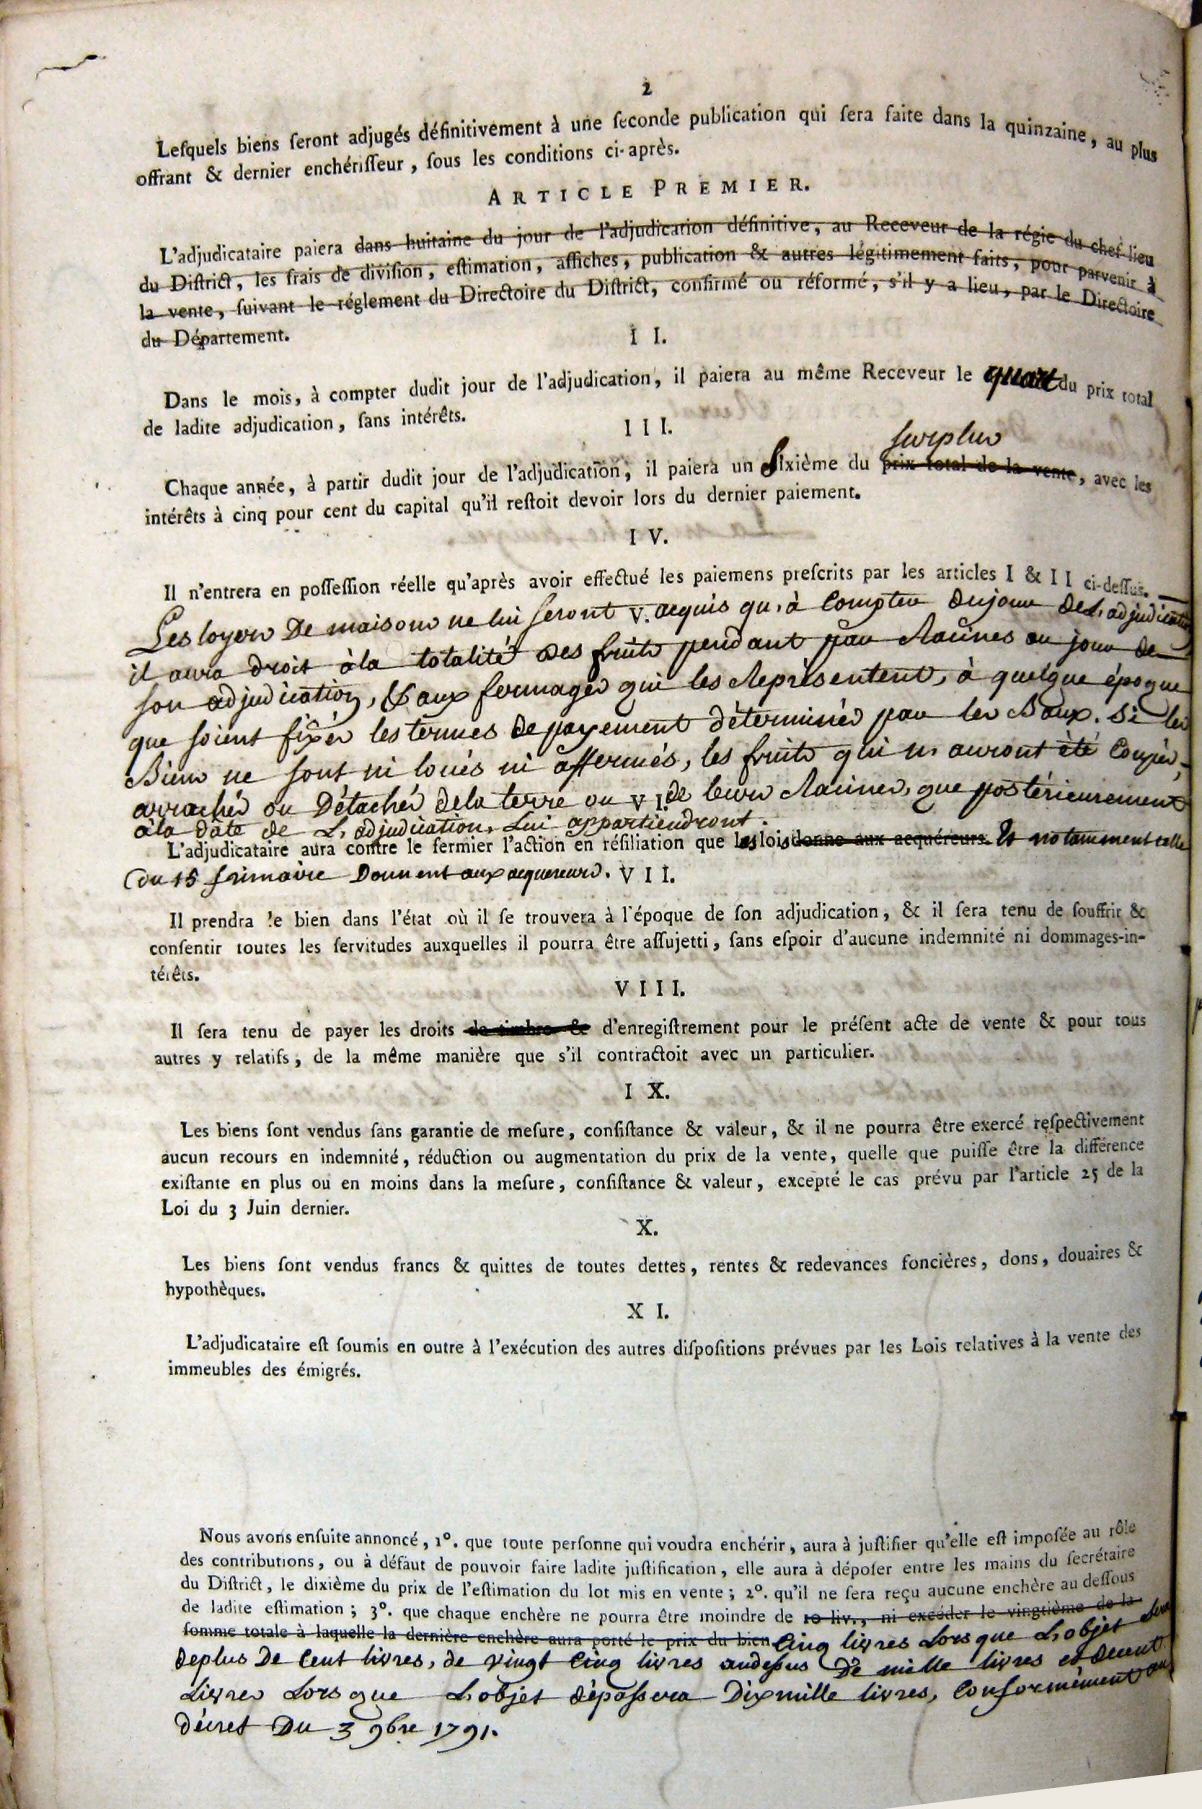 2
Lesquels biens seront adjugés définitivement à une seconde publication qui sera faite dans la quinzaine, au plus
offrant & dernier enchérisseur, sous les conditions ci-après.
ARTICLE PREMIER.
L'adjudicataire paiera dans huitaine du jour de l'adjudication définitive, au Receveur de la régie du chef-lieu
du District, les frais de division, estimation, affiches, publication & autres légitimement faits, pour parvenir à
la vente, suivant le réglement du Directoire du District, confirmé ou réformé, s'il y a lieu, par le Directoire
du Département.
II.
Dans le mois, à compter dudit jour de l'adjudication, il paiera au même Receveur le quart du prix total
de ladite adjudication, sans intérêts.
III.
surplus
Chaque année, à partir dudit jour de l'adjudication, il paiera un Sixième du prix total de la vente, avec les
intérêts à cinq pour cent du capital qu'il restoit devoir lors du dernier paiement.
IV.
Il n'entrera en possession réelle qu'après avoir effectué les paiemens prescrits par les articles I & II ci-dessus.
Les loyers De maisons ne lui seront V. acquis qu'à Compter du jour de L'adjudication
il aura droit à la totalité des fruits pendant par Racines au jour de
son adjudication, & aux fermages qui les Représentent, à quelque époque
que soient fixés les termes de payement déterminés par les Baux. Si les
Biens ne sont ni loués ni affermés, les fruits qui n'auront été Coupés,
arrachés ou Détachés de la terre ou VI. de leurs Racines, que postérieurement
à la date de L'adjudication, Lui appartiendront.
L'adjudicataire aura contre le fermier l'action en résiliation que les lois donne aux acquéreurs. Et notamment celle
du 15 frimaire Donnent aux acquereurs. VII.
Il prendra le bien dans l'état où il se trouvera à l'époque de son adjudication, & il sera tenu de souffrir &
consentir toutes les servitudes auxquelles il pourra être assujetti, sans espoir d'aucune indemnité ni dommages-in-
térêts.
VIII.
Il sera tenu de payer les droits de timbre & d'enregistrement pour le présent acte de vente & pour tous
autres y relatifs, de la même manière que s'il contractoit avec un particulier.
IX.
Les biens sont vendus sans garantie de mesure, consistance & valeur, & il ne pourra être exercé respectivement
aucun recours en indemnité, réduction ou augmentation du prix de la vente, quelle que puisse être la différence
existante en plus ou en moins dans la mesure, consistance & valeur, excepté le cas prévu par l'article 25 de la
Loi du 3 Juin dernier.
X.
Les biens sont vendus francs & quittes de toutes dettes, rentes & redevances foncières, dons, douaires &
hypothèques.
XI.
L'adjudicataire est soumis en outre à l'exécution des autres dispositions prévues par les Lois relatives à la vente des
immeubles des émigrés.
Nous avons ensuite annoncé, 1°. que toute personne qui voudra enchérir, aura à justifier qu'elle est imposée au rôle
des contributions, ou à défaut de pouvoir faire ladite justification, elle aura à déposer entre les mains du secrétaire
du District, le dixième du prix de l'estimation du lot mis en vente; 2°. qu'il ne sera reçu aucune enchère au dessous
de ladite estimation; 3°. que chaque enchère ne pourra être moindre de 10 liv., ni excéder le vingtième de la
somme totale à laquelle la dernière enchère aura porté le prix du bien Cinq livres Lors que L'objet sera
de plus De Cent livres, de vingt Cinq livres audessus De mille livres et de cent
Livres Lors que L'objet dépassera Dix mille livres, Conformément au
décret Du 3 9bre 1791.